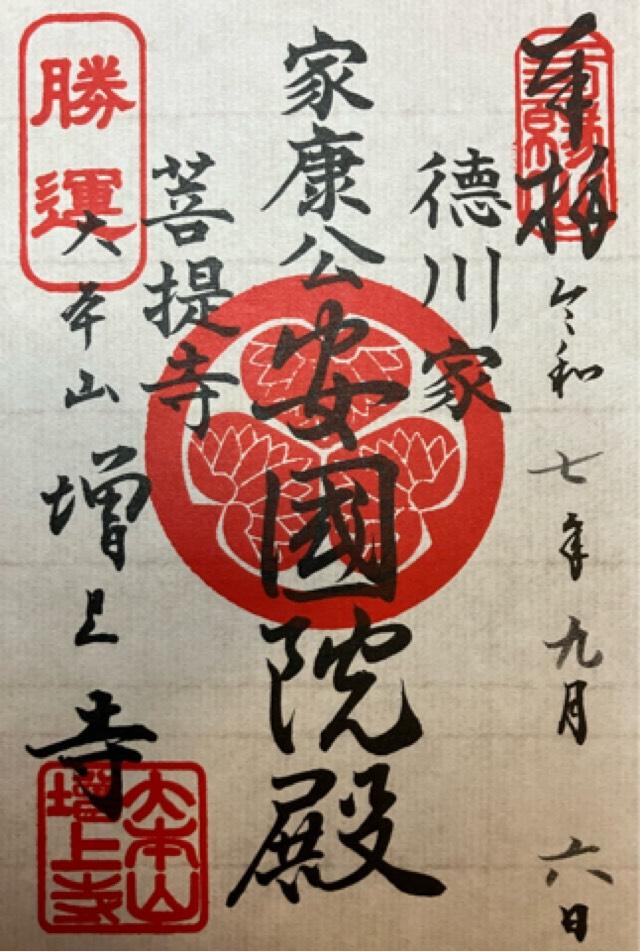 奉拝
令和七年九月六日
徳川家
家康公安國院殿
菩提寺
勝運
大本山増上寺
大本山
増上寺